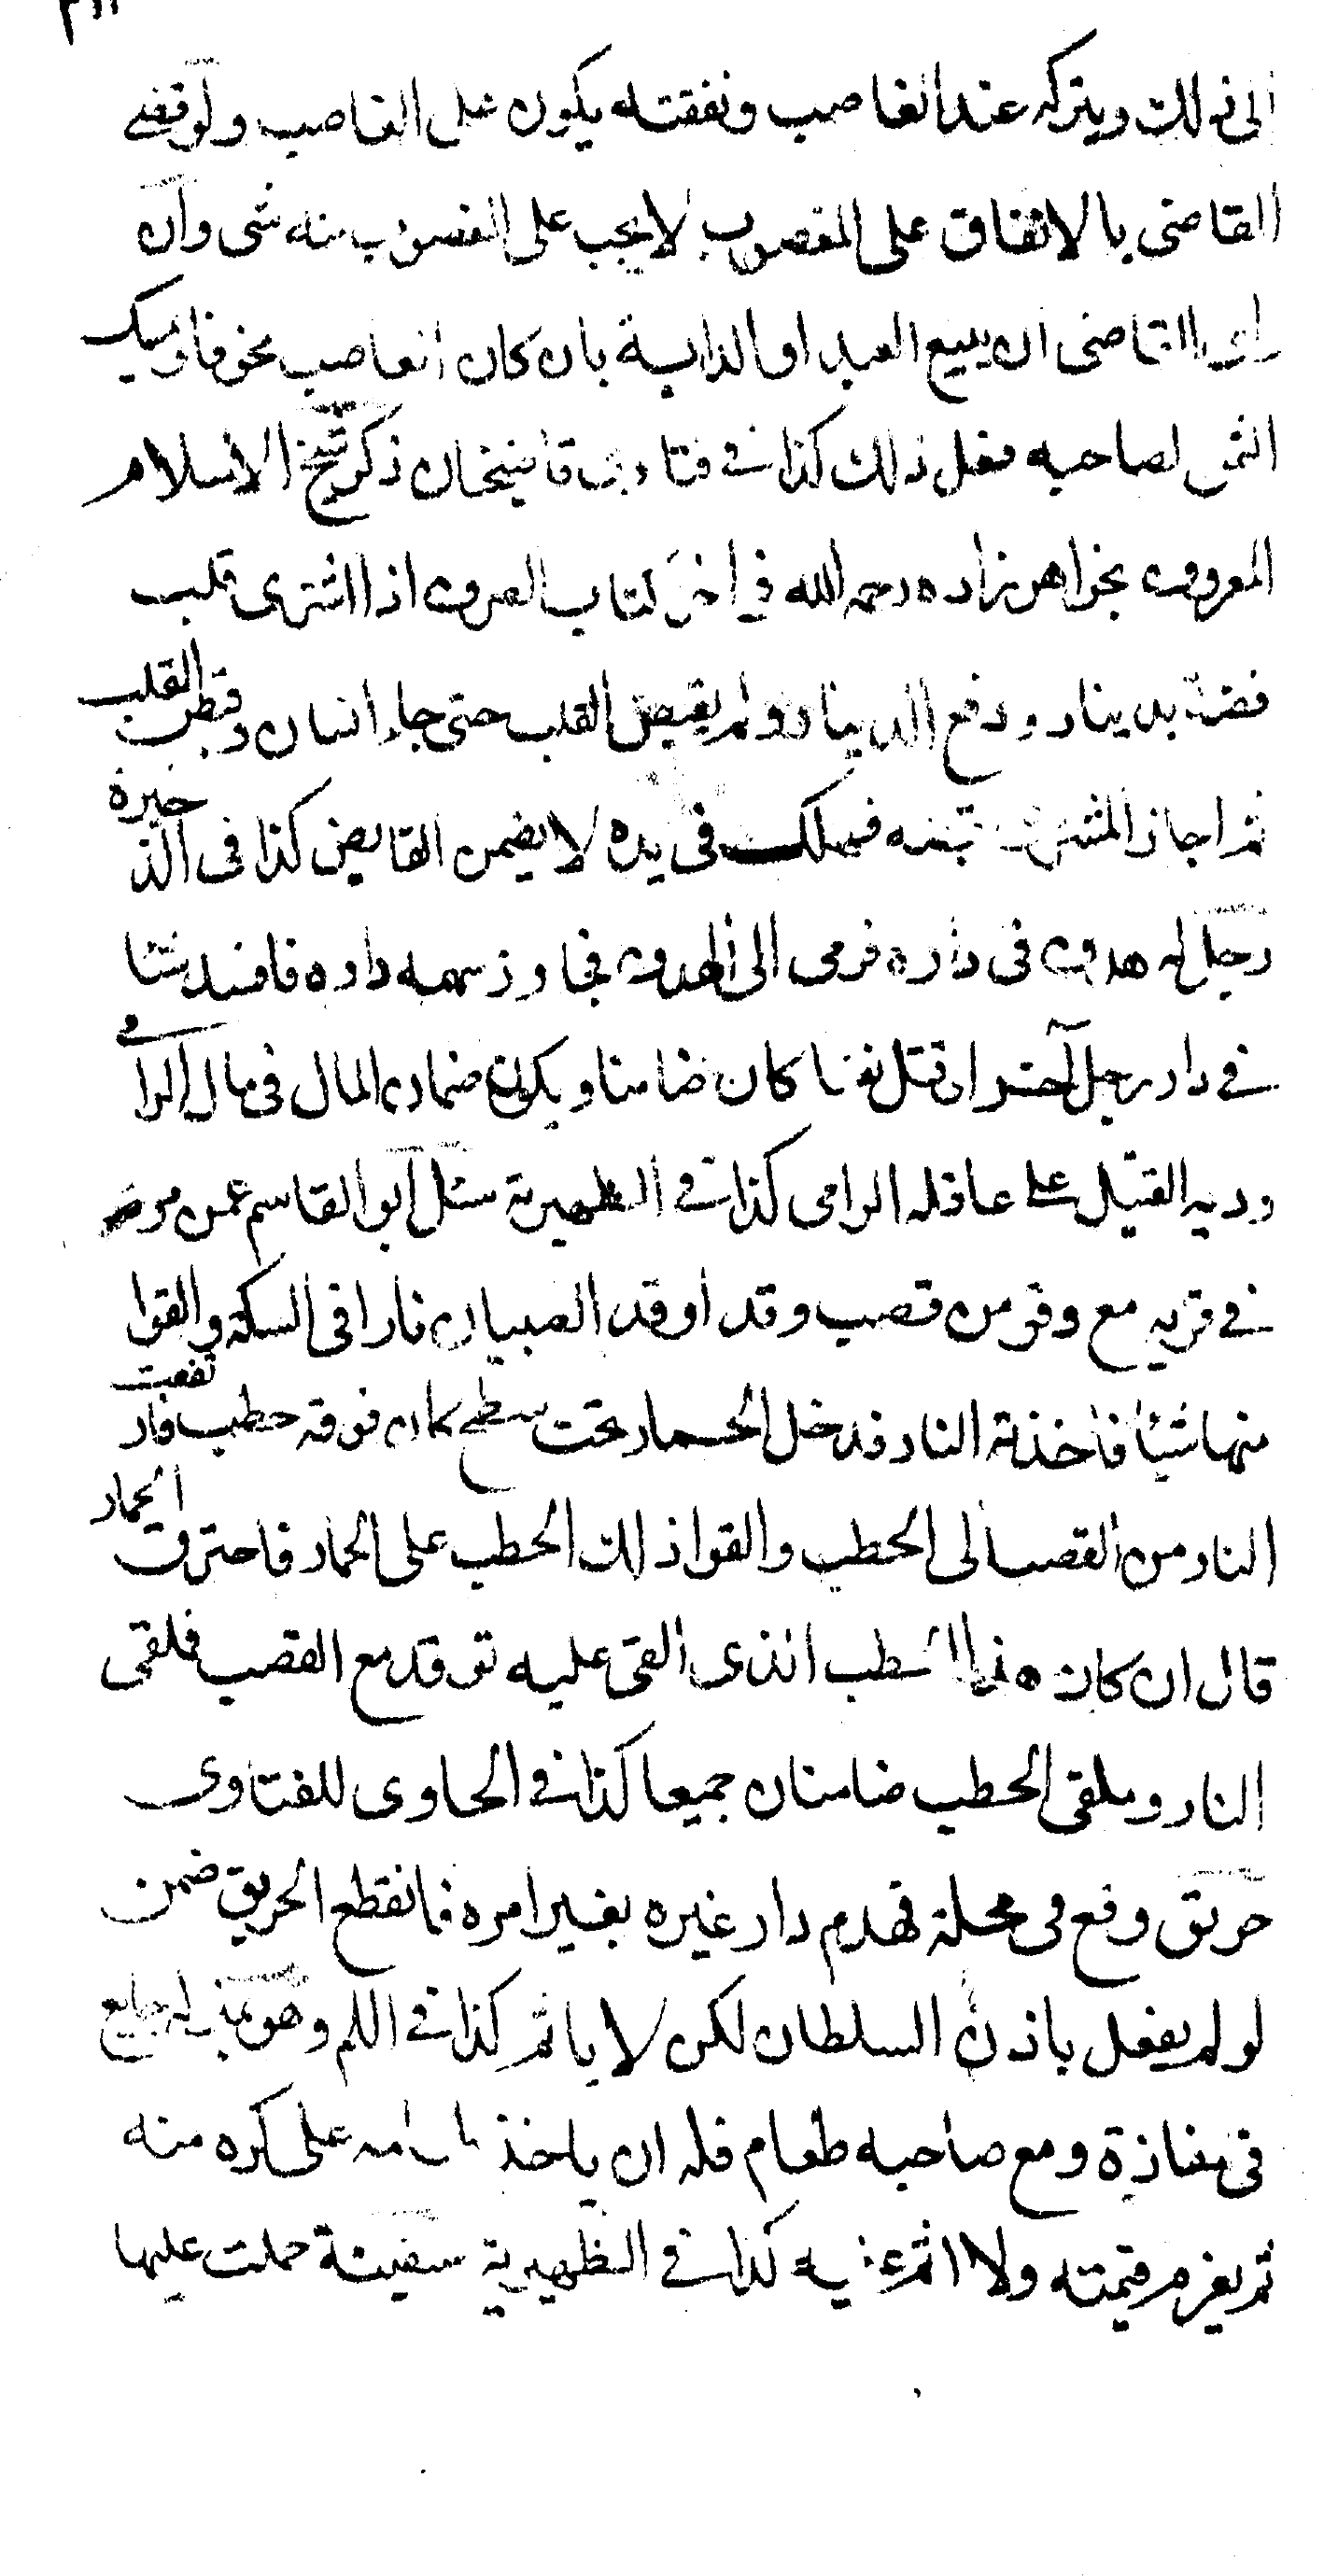 الى ذلك ويتركه عند الغاصب ونفقته يكون على الغاصب ولو قضى
القاضى بالانفاق على المغصوب لا يجب على المغصوب منه شى وان
راى القاضى ان يبيع العبد او الدابة بان كان الغاصب مخوفا ويمسك
الثمن لصاحبه فعل ذلك كذا فى فتاوى قاضيخان ذكر شيخ الاسلام
المعروف بخواهر زاده رحمه الله فى اخر كتاب الصرف اذا اشترى قلب
فضة بدينار ودفع الدينار ولم يقبض القلب حتى جاء انسان وقبض القلب
ثم اجاز المشترى قبضه فهلك فى يده لا يضمن القابض كذا فى الذخيرة
رجل له هدف فى داره فرمى الى الهدف فجاوز سهمه داره فافسد شئا
فى دار رجل آخر او قتل نفسا كان ضامنا ويكون ضمان المال فى مال الرامى
ودية القتيل على عاقلة الرامى كذا فى الظهيرية سئل ابو القاسم عمن مر
فى قرية مع وقر من قصب وقد اوقد الصبيان نارا فى السكة والقوا
منها شيئا فاخذته النار فدخل الحمار تحت سطح كان فوقه حطب فارتفعت
النار من القصب الى الحطب والقوا ذلك الحطب على الحمار فاحترق الحمار
قال ان كان هذا الحطب الذى القى عليه توقد مع القصب فملقى
النار وملقى الحطب ضامنان جميعا كذا فى الحاوى للفتاوى
حريق وقع فى محلة فهدم دار غيره بغير امره فانقطع الحريق ضمن
لو لم يفعل باذن السلطان لكن لا ياثم كذا فى وهو جايع
فى مفازة ومع صاحبه طعام فله ان ياخذ على كره منه
ثم يغرم قيمته ولا اثم عليه كذا فى الظهيرية سفينة حملت عليها